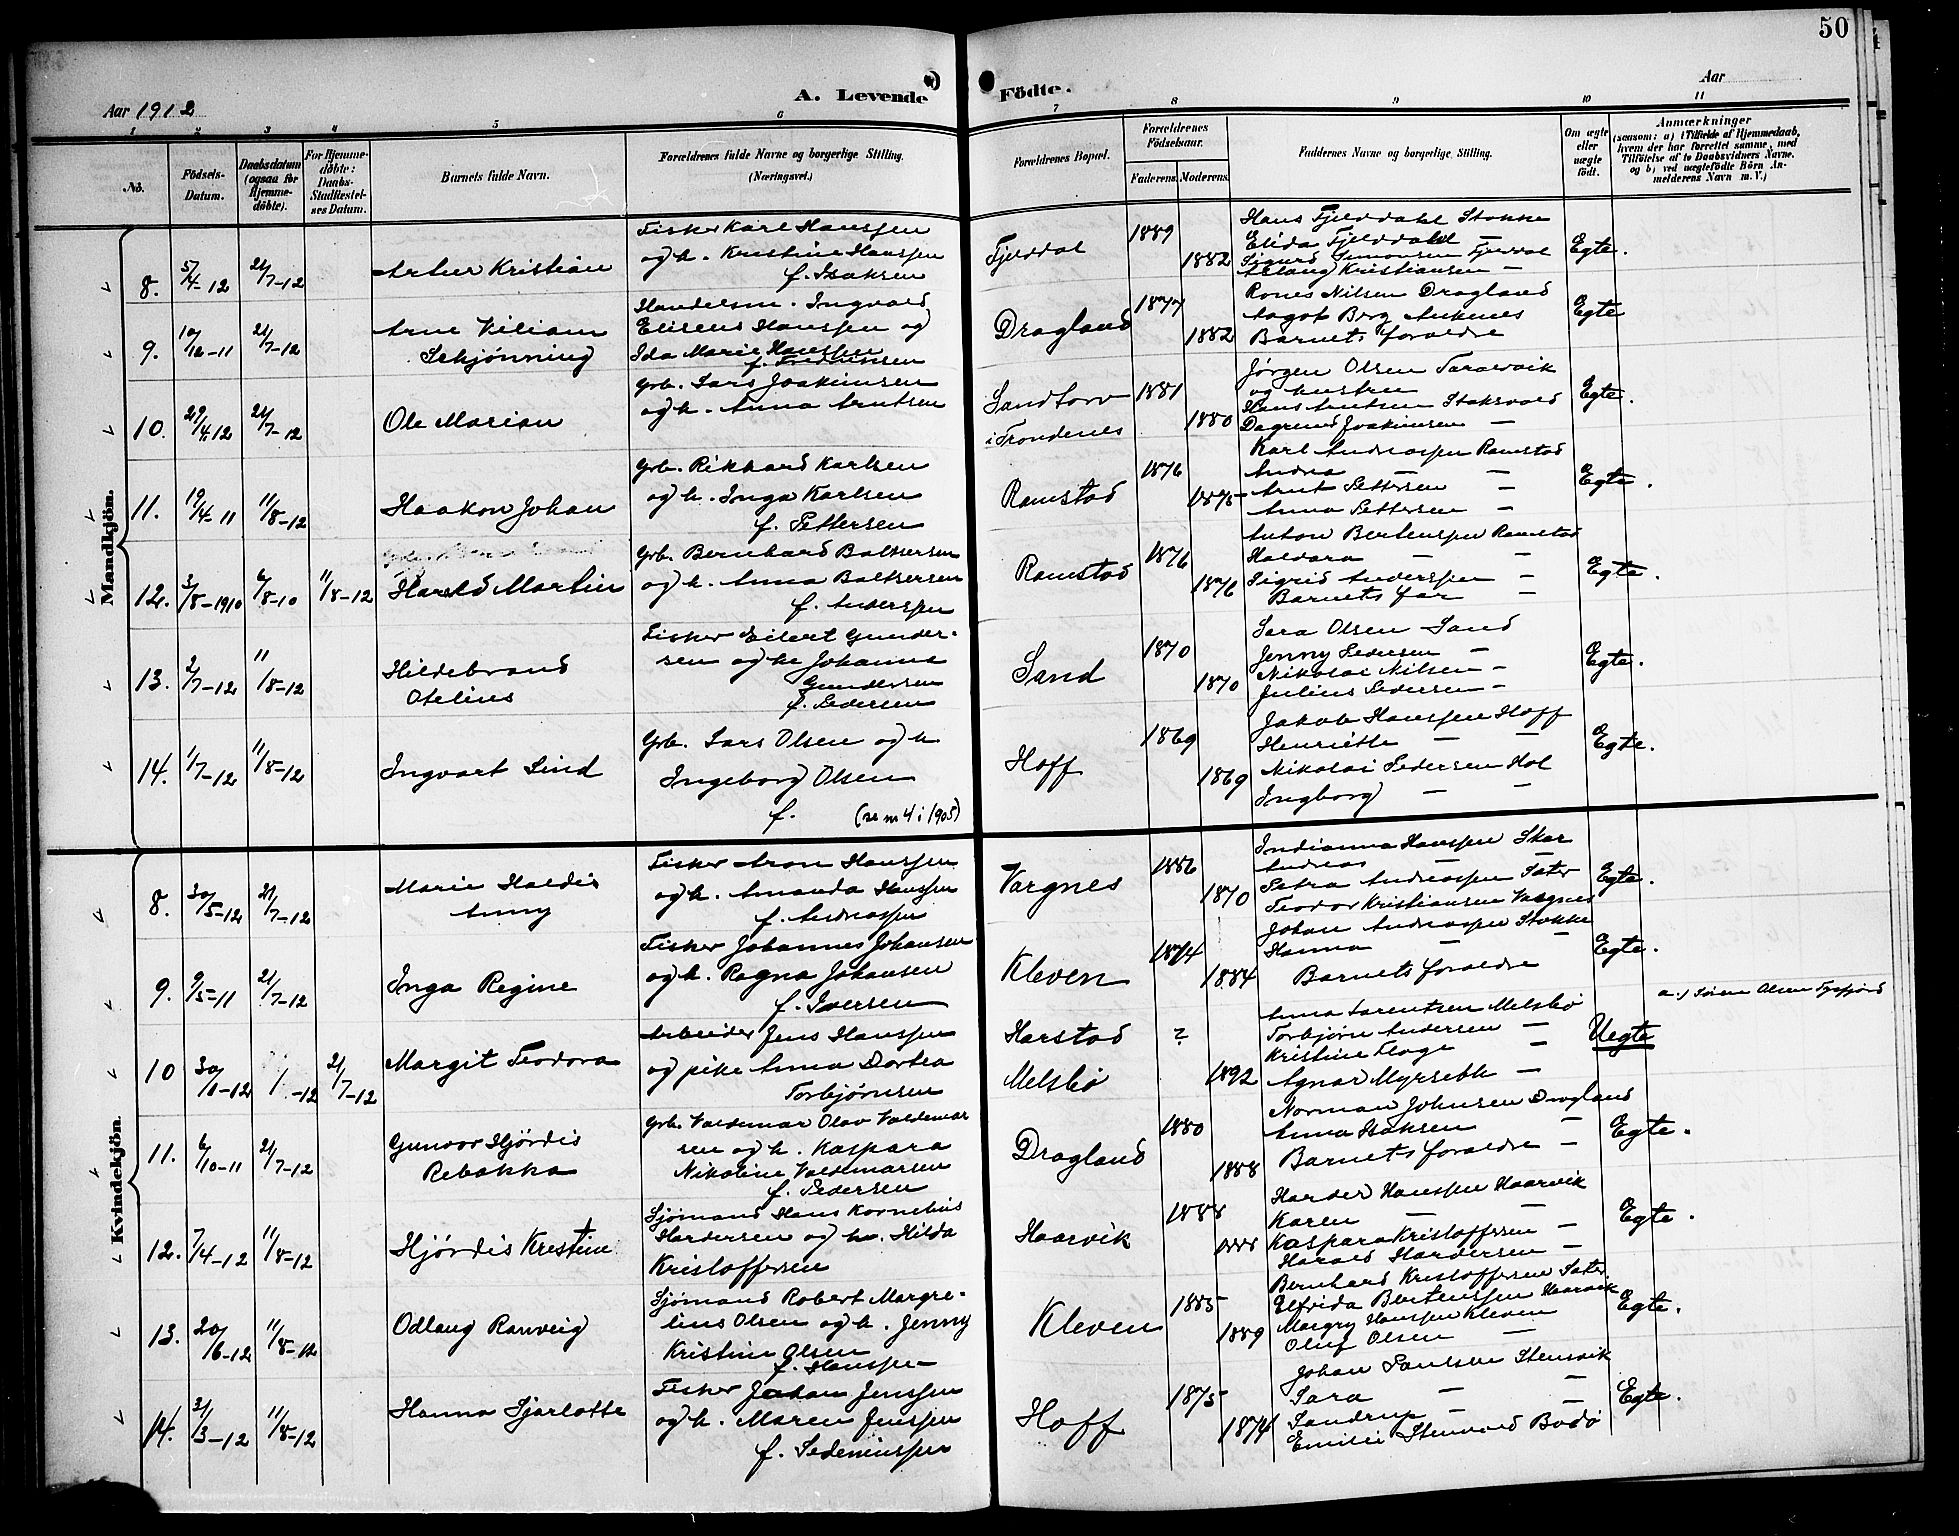 50
Aar 1912
A. Levende Födte.
Aar
1 2 3 4 5 6 7 8 9 10 11
No.
Födsels-Datum.
Daabsdatum (ogsaa for Hjemme-döbte).
For Hjemme-döbte: Daabs-Stadfæstel-ses Datum.
Barnets fulde Navn.
Forældrenes fulde Navne og borgerlige Stilling.
(Næringsvei.)
Forældrenes Bopæl.
Forældrenes Födselsaar.
Faderens. Moderens.
Faddernes Navne og borgerlige Stilling.
Om ægte eller uægte födt.
Anmærkninger
(saasom: a) i Tilfælde af Hjemmedaab,
hvem der har forrettet samme, med
Tilföielse af to Daabsvidners Navne,
og b) ved uægtefödte Börn An-
melderens Navn m. V.)
Mandkjön.
8. 5/4-12 21/7-12 Artur Kristian
Fisker Karl Hanssen
og h. Kristine Hanssen
f. Isaksen
Fjelddal 1889 1882
Hans Fjelddahl Stokke
Elida Fjelddahl —
Sigurd Simonsen Fjeldal
Aslaug Kristiansen —
Egte.
9. 10/12-11 21/7-12 Arne Viliam
Schjønning
Handelsm. Ingvald
Elisens Hanssen og
Ida Marie Hanssen
f. Fredriksen
Dragland 1877 1882
Rones Nilsen Dragland
Aagot Berg Ankenes
Barnets foraldre
Egte
10. 29/4-12 21/7-12 Ole Marian
Grb. Lars Joakimsen
og h. Anna Arntsen
Sandtorv
i Trondenes
1881 1880
Jørgen Olsen Taraldvik
og hustru
Hans Arntsen Stoksvold
Dagrund Joakimsen —
Egte.
11. 19/4-11 11/8-12 Haakon Johan
Grb. Rikhard Karlsen
og h. Inga Karlsen
f. Pettersen
Ramstad 1876 1875
Karl Andreassen Ramstad
Andrea — —
Arnt Pettersen —
Anna Pettersen —
Egte.
12. 3/8-1910 6/8-10 11/8-12 Harald Martin
Grb. Bernhard Baltsersen
og h. Anna Baltsersen
f. Anderssen
Ramstad 1876 1876
Anton Bertenssen Ramstad
Haldara — —
Sigrid Anderssen —
Barnets far —
Egte.
13. 2/7-12 11/8-12 Hildebrand
Otelius
Fisker Eilert Gunder-
sen og h. Johanne
Gundersen
f. Pedersen
Sand 1870 1870
Sara Olsen Sand
Jenny Pedersen —
Nikolai Nilsen —
Julius Pedersen —
Egte.
14. 1/7-12 11/8-12 Ingvart Lind
Grb. Lars Olsen og h
Ingeborg Olsen
f. (se nr 4 i 1905)
Hoff 1869 1869
Jakob Hanssen Hoff
Henriette — —
Nikolai Pedersen Hol
Ingborg — —
Egte.
Kvindekjön.
8. 30/5-12 21/7-12 Marie Haldis
Anny
Fisker Aron Hanssen
og h. Amanda Hanssen
f. Andreassen
Vargnes 1886 1870
Indianna Hanssen Skar
Andreas — —
Petra Andreassen Sater
Teodor Kristiansen Vargnes
Egte.
9. 9/5-11 21/7-12 Inga Regine
Fisker Johannes Johansen
og h. Ragna Johansen
f. Iversen
Kleven 1874 1884
Johan Andreassen Stokke
Hanna — —
Barnets foraldre
Egte.
10 30/1-12 /-12 21/7-12 Margit Teodora
Arbeider Jens Hanssen
og pike Anna Dortea
Torbjørnsen
Harstad ?
Melsbø 1892
Anna Larentsen Melsbø
Torbjørn Andersen —
Kristine Floge —
Agnar Myrsebk —
Uegte
a.) Søren Olsen Tysfjord
11. 6/10-11 21/7-12 Gunvor Hjørdis
Rebakka
Grb. Valdemar Olav Valdemar
sen og h. Kaspara
Nikoline Valdemarsen
f. Pedersen
Dragland 1880 1888
Norman Johnsen Dragland
Anna Isaksen —
Barnets foraldre —
Egte.
12. 7/4-12 11/8-12 Hjørdis Kristine
Sjømand Hans Kornelius
Hardersen og h. Hilda
Kristoffersen
Haarvik 1888 1888
Harder Hanssen Haarvik
Karen — —
Kaspara Kristoffersen —
Harald Hardersen —
Egte.
13. 20/6-12 11/8-12 Odlaug Ranveig
Sjømand Robert Margre-
lius Olsen og h. Jenny
Kristine Olsen
f. Hanssen
Kleven 1885 1889
Bernhard Kristoffersen Sater
Elfrida Bertenssen Haarvik
Margry Hanssen Kleven
Oluf Olsen —
Egte.
14. 21/3-12 11/8-12 Hanna Sjarlotte
Fisker Johan Jenssen
og h. Maren Jenssen
f. Pedeniussen
Hoff 1875 1874
Johan Paulsen Stensvik
Sara — —
Sandrup — —
Emilie Stenvold Bodø
Egte.